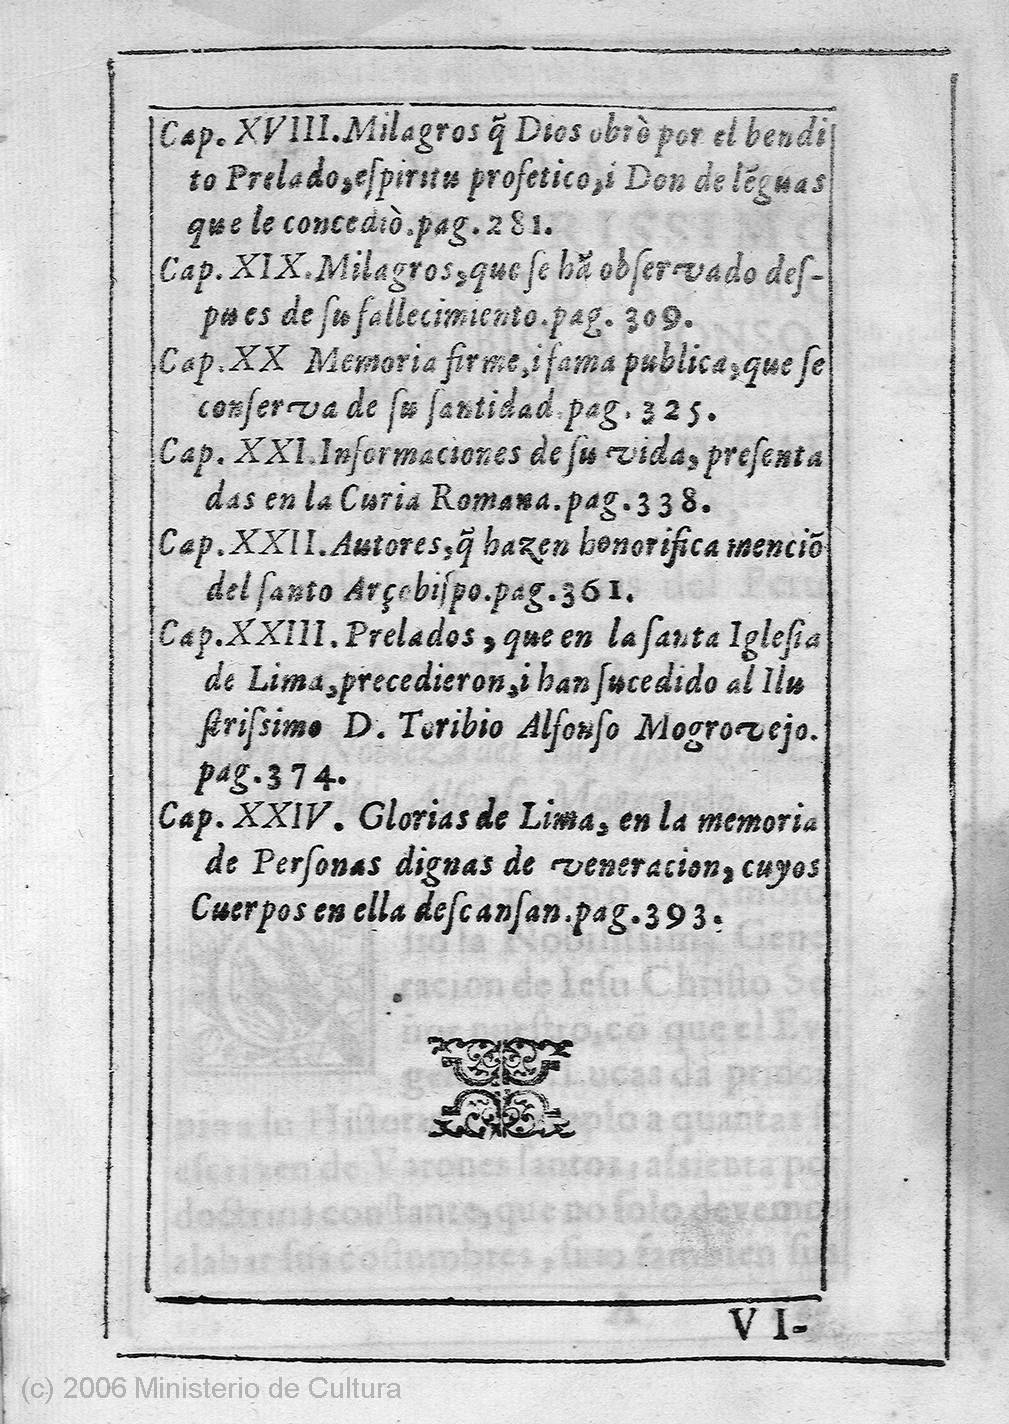 Cap. XVIII. Milagros q̃ Dios obrò por el bendi
to Prelado, eſpiritu profetico, i Don de lẽguas
que le concediò. pag. 281.
Cap. XIX. Milagros, que ſe hã obſervado deſ-
pues de ſu fallecimiento. pag. 309.
Cap. XX Memoria firme, i fama publica, que ſe
conſerva de ſu ſantidad. pag. 325.
Cap. XXI. Informaciones de ſu vida, preſenta
das en la Curia Romana. pag. 338.
Cap. XXII. Autores, q̃ hazen honorifica menciõ
del ſanto Arçobiſpo. pag. 361.
Cap. XXIII. Prelados, que en la ſanta Igleſia
de Lima, precedieron, i han ſucedido al Ilu
ſtriſsimo D. Toribio Alfonſo Mogrovejo.
pag. 374.
Cap. XXIV. Glorias de Lima, en la memoria
de Perſonas dignas de veneracion, cuyos
Cuerpos en ella deſcanſan. pag. 393.
VI-
(c) 2006 Ministerio de Cultura